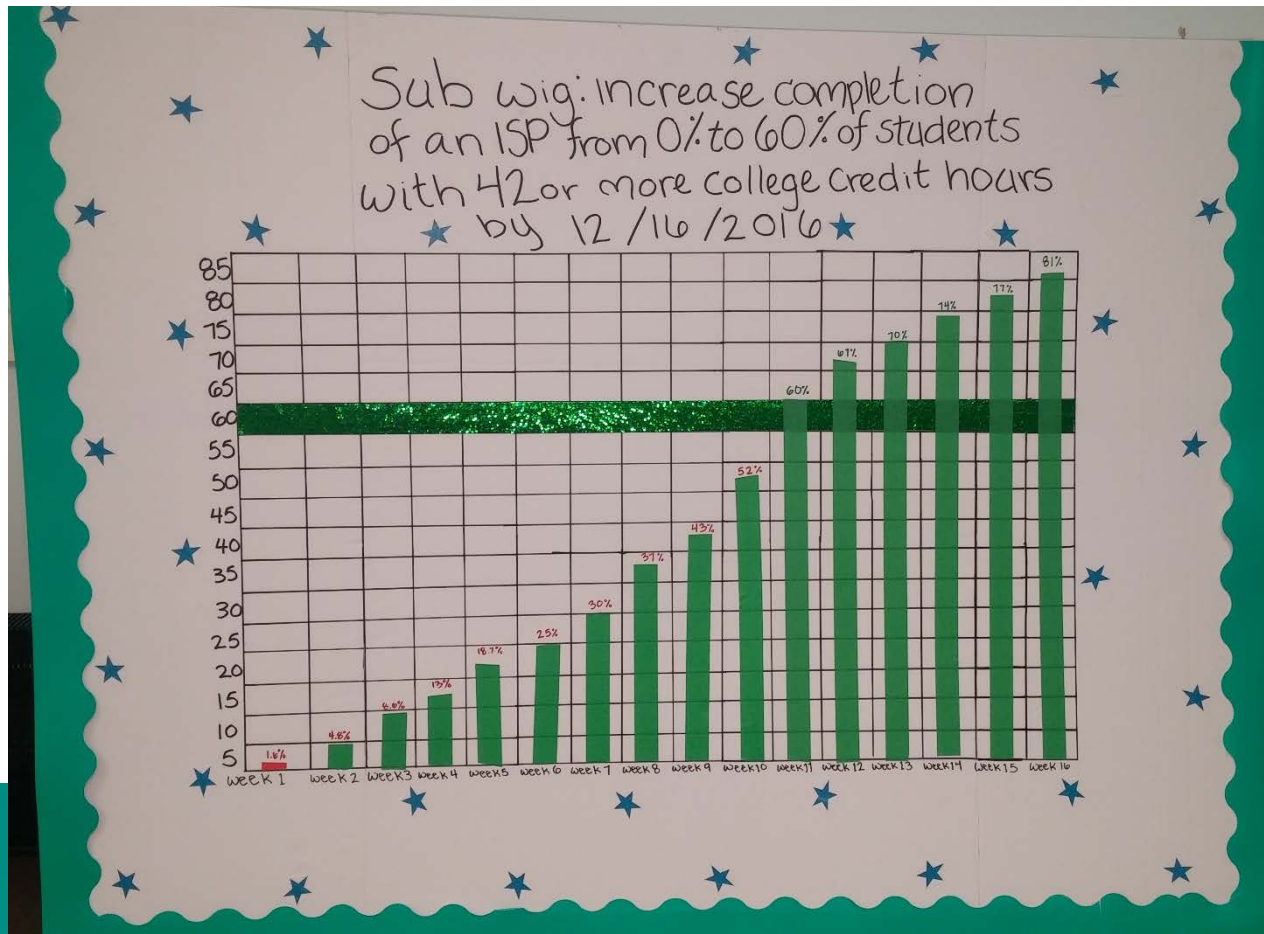 Sub wig: increase completion
of an ISP from 0% to 60% of students
with 42 or more college credit hours
by 12/16/2016
85
80
75
70
65
60
55
50
45
40
35
30
25
20
15
10
5
1.6%
4.8%
8.6%
13%
18.7%
25%
30%
37%
43%
52%
60%
67%
70%
74%
77%
81%
week 1 week 2 week 3 week 4 week 5 week 6 week 7 week 8 week 9 week 10 week 11 week 12 week 13 week 14 week 15 week 16